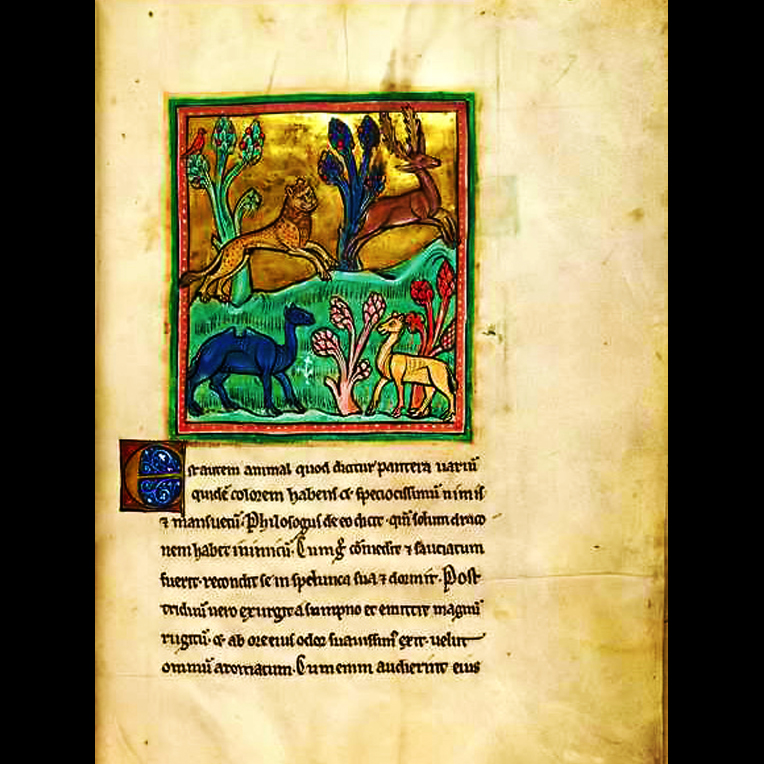 Est autem animal quod dicitur pantera uariū
quidē colorem habens & speciocissimū nimis
⁊ mansuetū. Phisologus de eo dicit. qm̄ solum draco
nem habet inimicū. Cum gͦ comedit ⁊ sauciatum
fuerit. recondit se in spelunca sua ⁊ dormit. Post
triduū uero exurgit a sumpno et emittit magnū
rugitū. & ab ore eius odor suauissimꝰ exit. uelut
omniū aromatum. Cum enim audierint eius